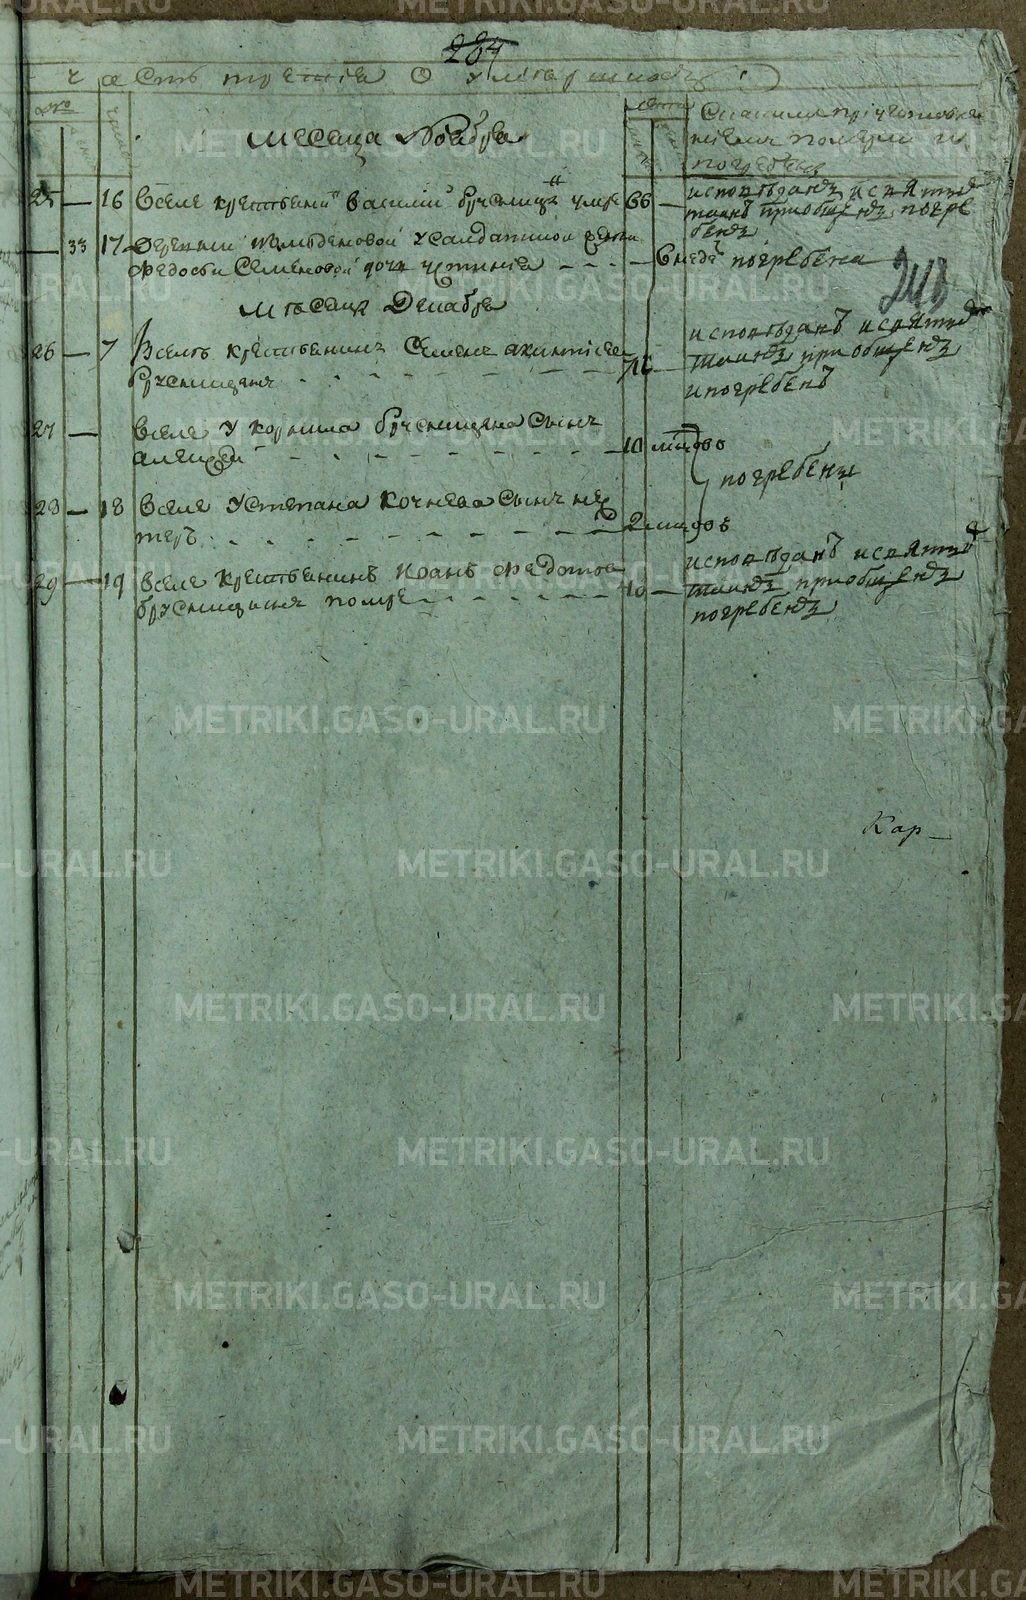 284
часть третия о умерших
№
лета
месяца Ноября
243
25 — 16 В селе крестьянин Василий Брусницын умре 66 — исповѣданъ и святых
таинъ приобщенъ погре
бенъ
— 33 17 деревни у салдатской жены
Федосьи Семеновой дочь Устиния — — — 6 недѣ погребена
мѣсяца Декабря
26 — 7 В селѣ крестьянинъ Семенъ
Брусницынъ — исповѣданъ и святых
таинъ приобщенъ
и погребенъ
27 — В селе у Корнила Брусницына сынъ
Алексей — — — 10 мѣсяцовъ
погребены
28 — 18 В селе у Степана Кочнева сынъ Пе
тръ — — — 2 месяцовъ
29 — 19 В селе крестьянинъ Иоанъ Федотов
Брусницынъ помре — — — 70 — исповѣданъ и святых
таинъ приобщенъ
погребенъ
Кар—
METRIKI.GASO-URAL.RU